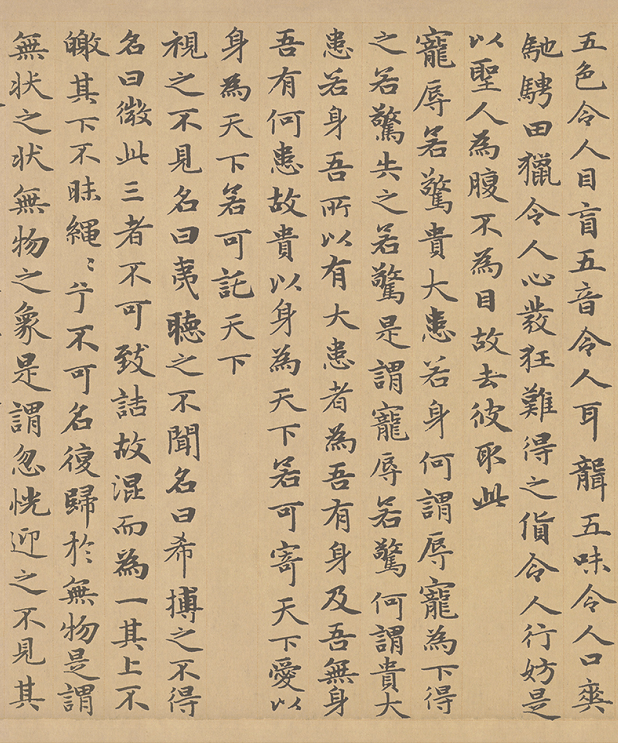 五色令人目盲五音令人耳聾五味令人口爽
馳騁田獵令人心發狂難得之貨令人行妨是
以聖人為腹不為目故去彼取此
寵辱若驚貴大患若身何謂辱寵為下得
之若驚失之若驚是謂寵辱若驚何謂貴大
患若身吾所以有大患者為吾有身及吾無身
吾有何患故貴以身為天下若可寄天下愛以
身為天下若可託天下
視之不見名曰夷聽之不聞名曰希搏之不得
名曰微此三者不可致詰故混而為一其上不
皦其下不昧繩〻兮不可名復歸於無物是謂
無状之状無物之象是謂忽恍迎之不見其